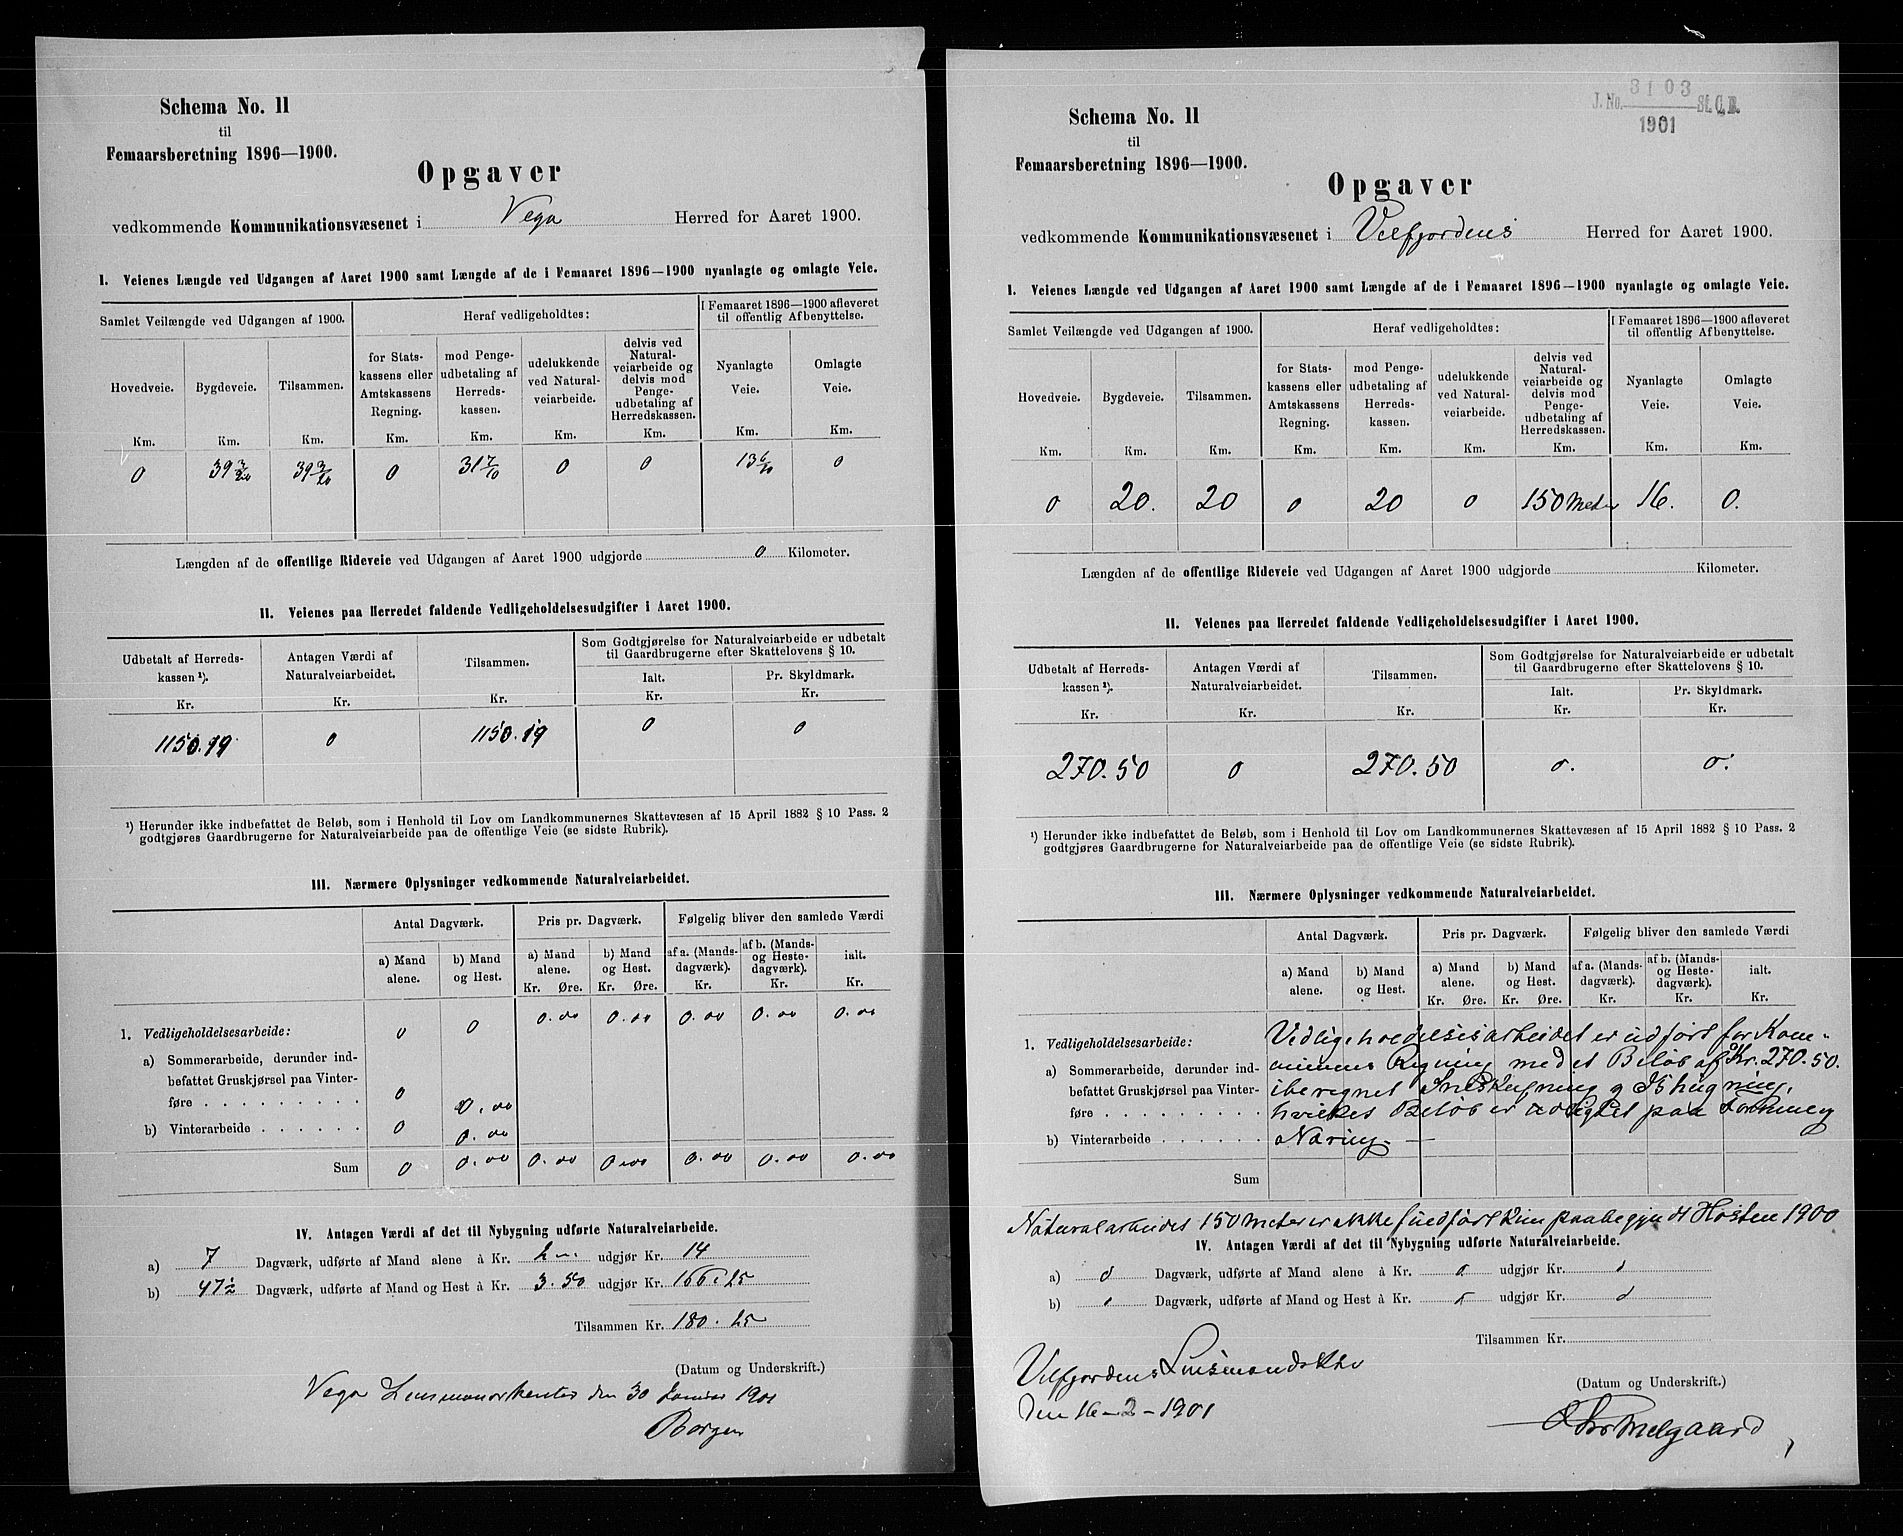 Schema No. 11
til
Femaarsberetning 1896—1900.
Opgaver
vedkommende Kommunikationsvæsenet i Vega Herred for Aaret 1900.
I. Veienes Længde ved Udgangen af Aaret 1900 samt Længde af de i Femaaret 1896—1900 nyanlagte og omlagte Veie.
Samlet Veilængde ved Udgangen af 1900.
Heraf vedligeholdtes:
I Femaaret 1896—1900 afleveret til offentlig Afbenyttelse.
Hovedveie. Bygdeveie. Tilsammen.
for Statskassens eller Amtskassens Regning.
mod Pengeudbetaling af Herredskassen.
udelukkende ved Naturalveiarbeide.
delvis ved Naturalveiarbeide og delvis mod Pengeudbetaling af Herredskassen.
Nyanlagte Veie.
Omlagte Veie.
Km. Km. Km. Km. Km. Km. Km. Km. Km.
0 39 3/20 39 3/20 0 31 7/10 0 0 13 6/10 0
Længden af de offentlige Rideveie ved Udgangen af Aaret 1900 udgjorde 0 Kilometer.
II. Veienes paa Herredet faldende Vedligeholdelsesudgifter i Aaret 1900.
Udbetalt af Herredskassen ¹).
Antagen Værdi af Naturalveiarbeidet.
Tilsammen.
Som Godtgjørelse for Naturalveiarbeide er udbetalt til Gaardbrugerne efter Skattelovens § 10.
Ialt. Pr. Skyldmark.
Kr. Kr. Kr. Kr. Kr.
1150.19 0 1150.19 0 0
¹) Herunder ikke indbefattet de Beløb, som i Henhold til Lov om Landkommunernes Skattevæsen af 15 April 1882 § 10 Pass. 2
godtgjøres Gaardbrugerne for Naturalveiarbeide paa de offentlige Veie (se sidste Rubrik).
III. Nærmere Oplysninger vedkommende Naturalveiarbeidet.
Antal Dagværk. Pris pr. Dagværk. Følgelig bliver den samlede Værdi
a) Mand alene. b) Mand og Hest. a) Mand alene. b) Mand og Hest. af a. (Mandsdagværk). af b. (Mands- og Hestedagværk). ialt.
Kr. Øre. Kr. Øre. Kr. Kr. Kr.
1. Vedligeholdelsesarbeide: 0 0 0.00 0.00 0.00 0.00 0.00
a) Sommerarbeide, derunder indbefattet Gruskjørsel paa Vinterføre 0 0.00
b) Vinterarbeide 0 0.00
Sum 0 0.00 0.00 0.00 0.00 0.00 0.00
IV. Antagen Værdi af det til Nybygning udførte Naturalveiarbeide.
a) 7 Dagværk, udførte af Mand alene à Kr. 2 udgjør Kr. 14
b) 47½ Dagværk, udførte af Mand og Hest à Kr. 3.50 udgjør Kr. 166.25
Tilsammen Kr. 180.25
(Datum og Underskrift.)
Vega Lensmandskontor den 30 Januar 1901
Borgen
J. No. 3103 St. C. B.
1901
Schema No. 11
til
Femaarsberetning 1896—1900.
Opgaver
vedkommende Kommunikationsvæsenet i Velfjordens Herred for Aaret 1900.
I. Veienes Længde ved Udgangen af Aaret 1900 samt Længde af de i Femaaret 1896—1900 nyanlagte og omlagte Veie.
Samlet Veilængde ved Udgangen af 1900.
Heraf vedligeholdtes:
I Femaaret 1896—1900 afleveret til offentlig Afbenyttelse.
Hovedveie. Bygdeveie. Tilsammen.
for Statskassens eller Amtskassens Regning.
mod Pengeudbetaling af Herredskassen.
udelukkende ved Naturalveiarbeide.
delvis ved Naturalveiarbeide og delvis mod Pengeudbetaling af Herredskassen.
Nyanlagte Veie.
Omlagte Veie.
Km. Km. Km. Km. Km. Km. Km. Km. Km.
0 20. 20 0 20 0 150 Meter 16. 0.
Længden af de offentlige Rideveie ved Udgangen af Aaret 1900 udgjorde Kilometer.
II. Veienes paa Herredet faldende Vedligeholdelsesudgifter i Aaret 1900.
Udbetalt af Herredskassen ¹).
Antagen Værdi af Naturalveiarbeidet.
Tilsammen.
Som Godtgjørelse for Naturalveiarbeide er udbetalt til Gaardbrugerne efter Skattelovens § 10.
Ialt. Pr. Skyldmark.
Kr. Kr. Kr. Kr. Kr.
270.50 0 270.50 0. 0.
¹) Herunder ikke indbefattet de Beløb, som i Henhold til Lov om Landkommunernes Skattevæsen af 15 April 1882 § 10 Pass. 2
godtgjøres Gaardbrugerne for Naturalveiarbeide paa de offentlige Veie (se sidste Rubrik).
III. Nærmere Oplysninger vedkommende Naturalveiarbeidet.
Antal Dagværk. Pris pr. Dagværk. Følgelig bliver den samlede Værdi
a) Mand alene. b) Mand og Hest. a) Mand alene. b) Mand og Hest. af a. (Mandsdagværk). af b. (Mands- og Hestedagværk). ialt.
Kr. Øre. Kr. Øre. Kr. Kr. Kr.
1. Vedligeholdelsesarbeide:
a) Sommerarbeide, derunder indbefattet Gruskjørsel paa Vinterføre
b) Vinterarbeide
Sum
Vedligeholdelsesarbeidet er udført for Kommunens Regning med et Beløb af Kr. 270.50.
iberegnet Sneskufning og Ishugning,
hvilket Beløb er udlignet paa Formue
Næring.
Naturalarbeidet 150 meter er ikke udført kun paabegyndt Høsten 1900
IV. Antagen Værdi af det til Nybygning udførte Naturalveiarbeide.
a) 0 Dagværk, udførte af Mand alene à Kr. 0 udgjør Kr. 0
b) 0 Dagværk, udførte af Mand og Hest à Kr. 0 udgjør Kr. 0
Tilsammen Kr.
(Datum og Underskrift.)
Velfjordens Lensmandsktr
den 16-2-1901